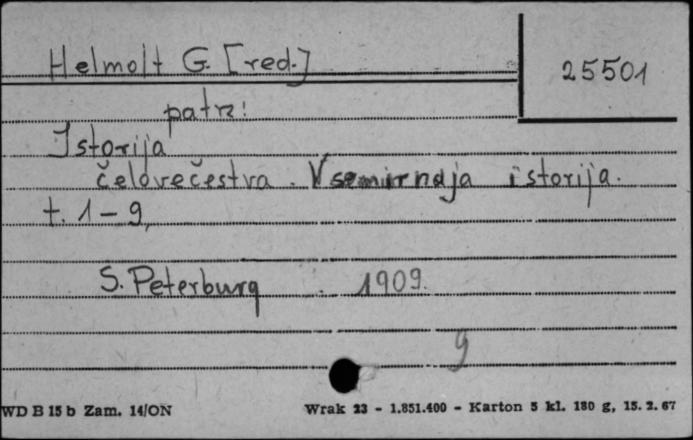 Helmolt G. [red.]
25501
patrz:
Istorija
čelovečestva. Vsemirnaja istorija.
t. 1-9,
S. Peterburg 1909.
9
WD B 15 b Zam. 14/ON
Wrak 23 - 1.851.400 - Karton 5 kl. 180 g, 15. 2. 67